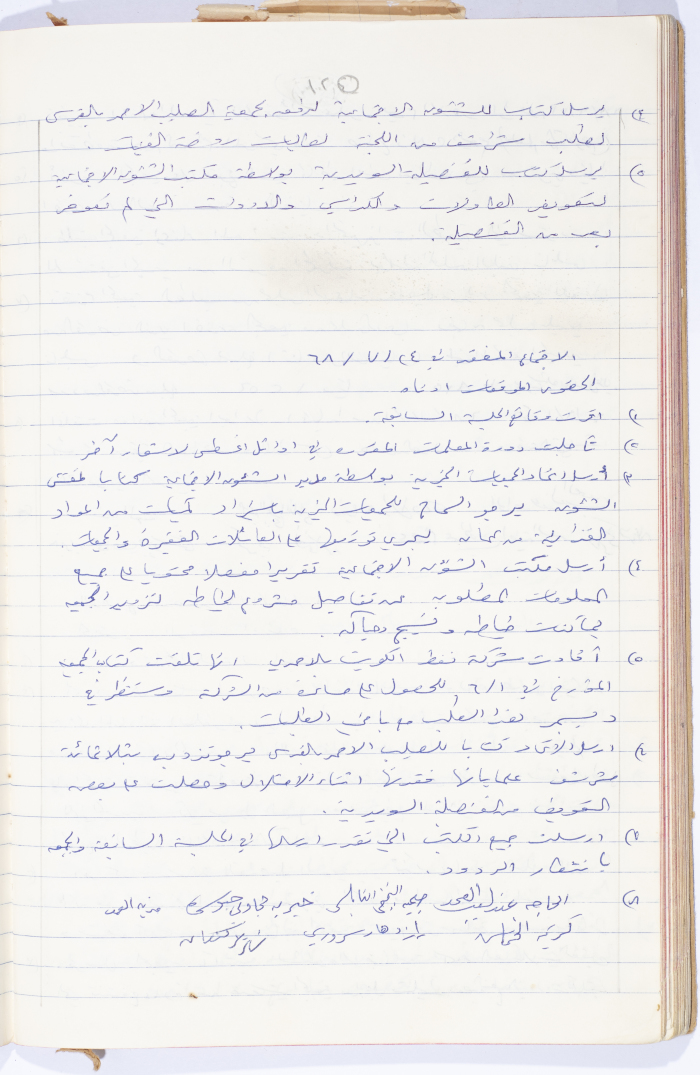 ٤) يرسل كتاب للشئون الاجتماعية لدفعه لجمعية الصليب الاحمر بالقدس
لطلب شراشف من اللجنة لطالبات روضة الفتيات.
٥) يرسل كتاب للقنصلية السويدية بواسطة مكتب الشئون الاجتماعية
لتعويض الطاولات والكراسي والادوات التي لم تعوض
بعد من القنصلية.
الاجتماع المنعقد في ٢٤ / ٧ / ٦٨
الحضور الموقعات ادناه
١) اقرت وقائع الجلسة السابقة.
٢) تأجلت دورة المعلمات المقررة في اوائل اغسطس لاشعار آخر
٣) أرسل اتحاد الجمعيات الخيرية بواسطة مدير الشئون الاجتماعية كتابا لمفتش
الشئون يرجو السماح للجمعيات الخيرية باستيراد كميات من المواد
الغذائية من عمان ليجري توزيعها على العائلات الفقيرة والجمعيات.
٤) أرسل مكتب الشؤون الاجتماعية تقريرا مفصلا محتويا على جميع
المعلومات المطلوبة عن تفاصيل مشروع الخياطة لتزويد الجمعية
بماكنات خياطه ونسيج وحياكه.
٥) أفادت شركة نفط الكويت بالاحمدي انها تلقت كتاب الجمعية
المؤرخ في ٦/١ للحصول على مساعدة من الشركة وستنظر في
دراسة هذا الطلب مع باقي الطلبات.
٦) ارسل الاتحاد كتابا للصليب الاحمر بالقدس يرجو تزويده بثلاثمائة
شرشف علما بانها فقدتها اثناء الاحتلال وحصلت على بعض
التعويض من القنصلة السويدية.
٧) ارسلت جميع الكتب التي تقرر ارسالها في الجلسة السابقة والجمعية
بانتظار الردود.
٨) الحاجه عندليب العمد صبحيه التميمي النابلسي خيريه حجاوي مزين العمد
كريمه الخماش